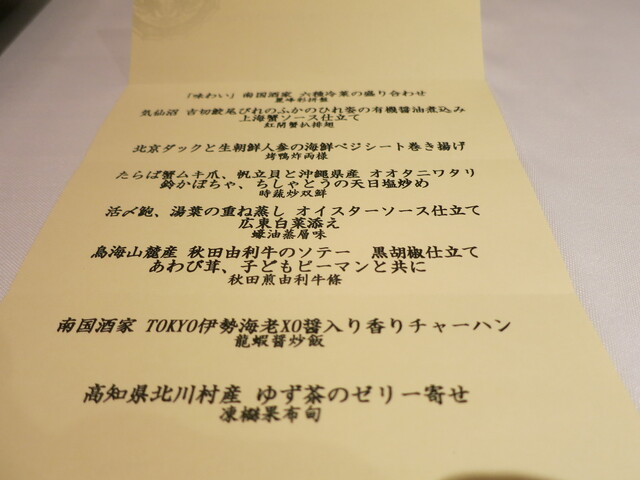 「味わい」 南国酒家 六種冷菜の盛り合わせ
気仙沼 吉切鮫尾びれのふかのひれ姿の有機醤油煮込み
上海蟹ソース仕立て
紅閙蟹扒排翅
北京ダックと生朝鮮人参の海鮮ベジシート巻き揚げ
烤鴨炸両様
たらば蟹ムキ爪、帆立貝と沖縄県産 オオタニワタリ
鈴かぼちゃ、ちしゃとうの天日塩炒め
時蔬炒双鮮
活〆鮑、湯葉の重ね蒸し オイスターソース仕立て
広東白菜添え
蠔油蒸層味
鳥海山麓産 秋田由利牛のソテー 黒胡椒仕立て
あわび茸、子どもピーマンと共に
秋田煎由利牛條
南国酒家 TOKYO伊勢海老XO醤入り香りチャーハン
龍蝦醤炒飯
高知県北川村産 ゆず茶のゼリー寄せ
凍樹果布甸